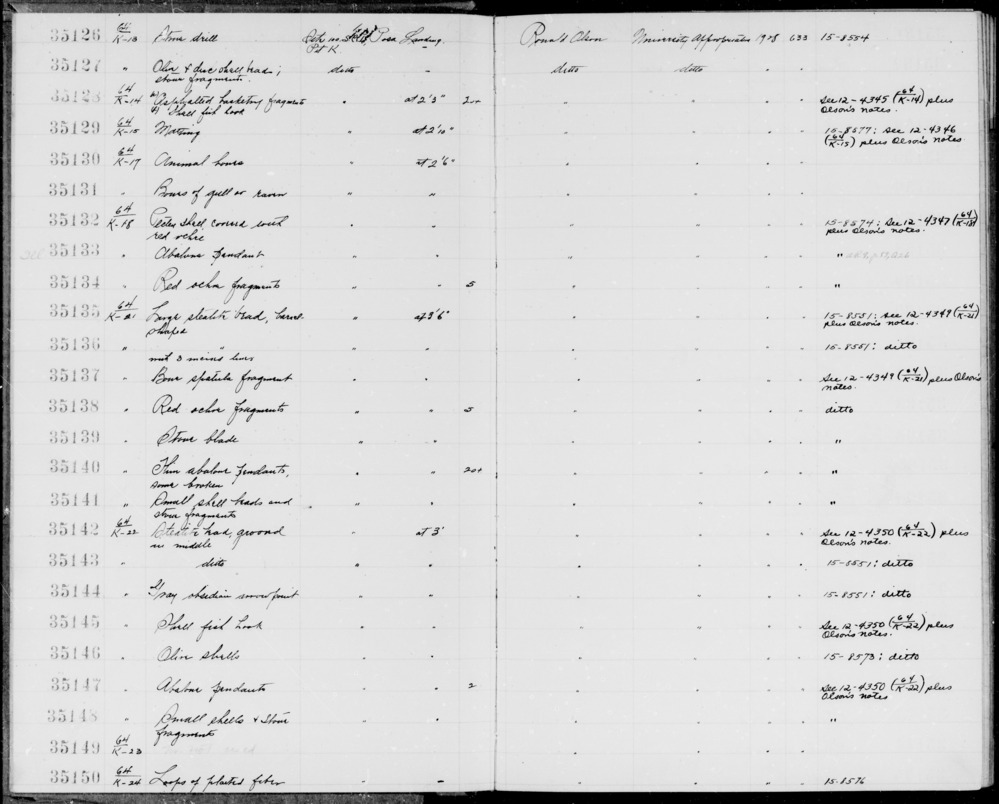 35126 64/K-13 Stone drill Posa Landing. Pit K Ronald Olson University Appropriation 1928 633 15-8554
35127 " Oliv + disc shell beads; ditto - ditto ditto
stone fragments.
35128 64/K-14 Asphalted basketry fragments " at 2'3" 2++ See 12-4345 (64/K-14) plus
Shell fish hook Olson's notes.
35129 64/K-15 Matting " at 2'10" 15-8577; see 12-4346
(64/K-15) plus Olson's notes
35130 64/K-17 Animal bones " at 2'6"
35131 " Bones of gull or raven " "
35132 64/K-18 Pecten shell, covered with " " 15-8574; See 12-4347 (64/K-18)
red ochre plus Olson's notes.
35133 " Abalone pendant " " "
35134 " Red ochre fragments " " 5 "
35135 64/K-21 Large steatite bead, barrel " at 3'6" 15-8551; see 12-4349 (64/K-21)
shaped plus Olson's notes.
35136 " " " " 15-8551; ditto
with 3 incised lines
35137 " Bone spatula fragment " " See 12-4349 (64/K-21) plus Olson's
notes.
35138 " Red ochre fragments " " 5 ditto
35139 " Stone blade " " "
35140 " Thin abalone pendants, " " 20+ "
some broken
35141 " Small shell beads and " " "
stone fragments
35142 64/K-22 Steatite bead, grooved " at 3' See 12-4350 (64/K-22) plus
in middle Olson's notes.
35143 " ditto " " 15-8551; ditto
35144 " Gray obsidian arrowpoint " " 15-8551; ditto
35145 " Shell fish hook " " See 12-4350 (64/K-22) plus
Olson's notes.
35146 " Oliv shells " " 15-8573; ditto
35147 " Abalone pendants " " 2 See 12-4350 (64/K-22) plus
Olson's notes
35148 " Small shells + stone " " "
fragments
35149 64/K-23
35150 64/K-24 Loops of plaited fiber " - 15-8576